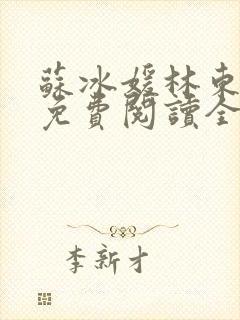 蘇冰媛林東
免費閱讀全
李新才